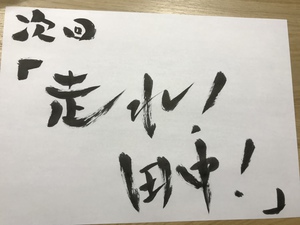 次回
「走れ!
田中!」